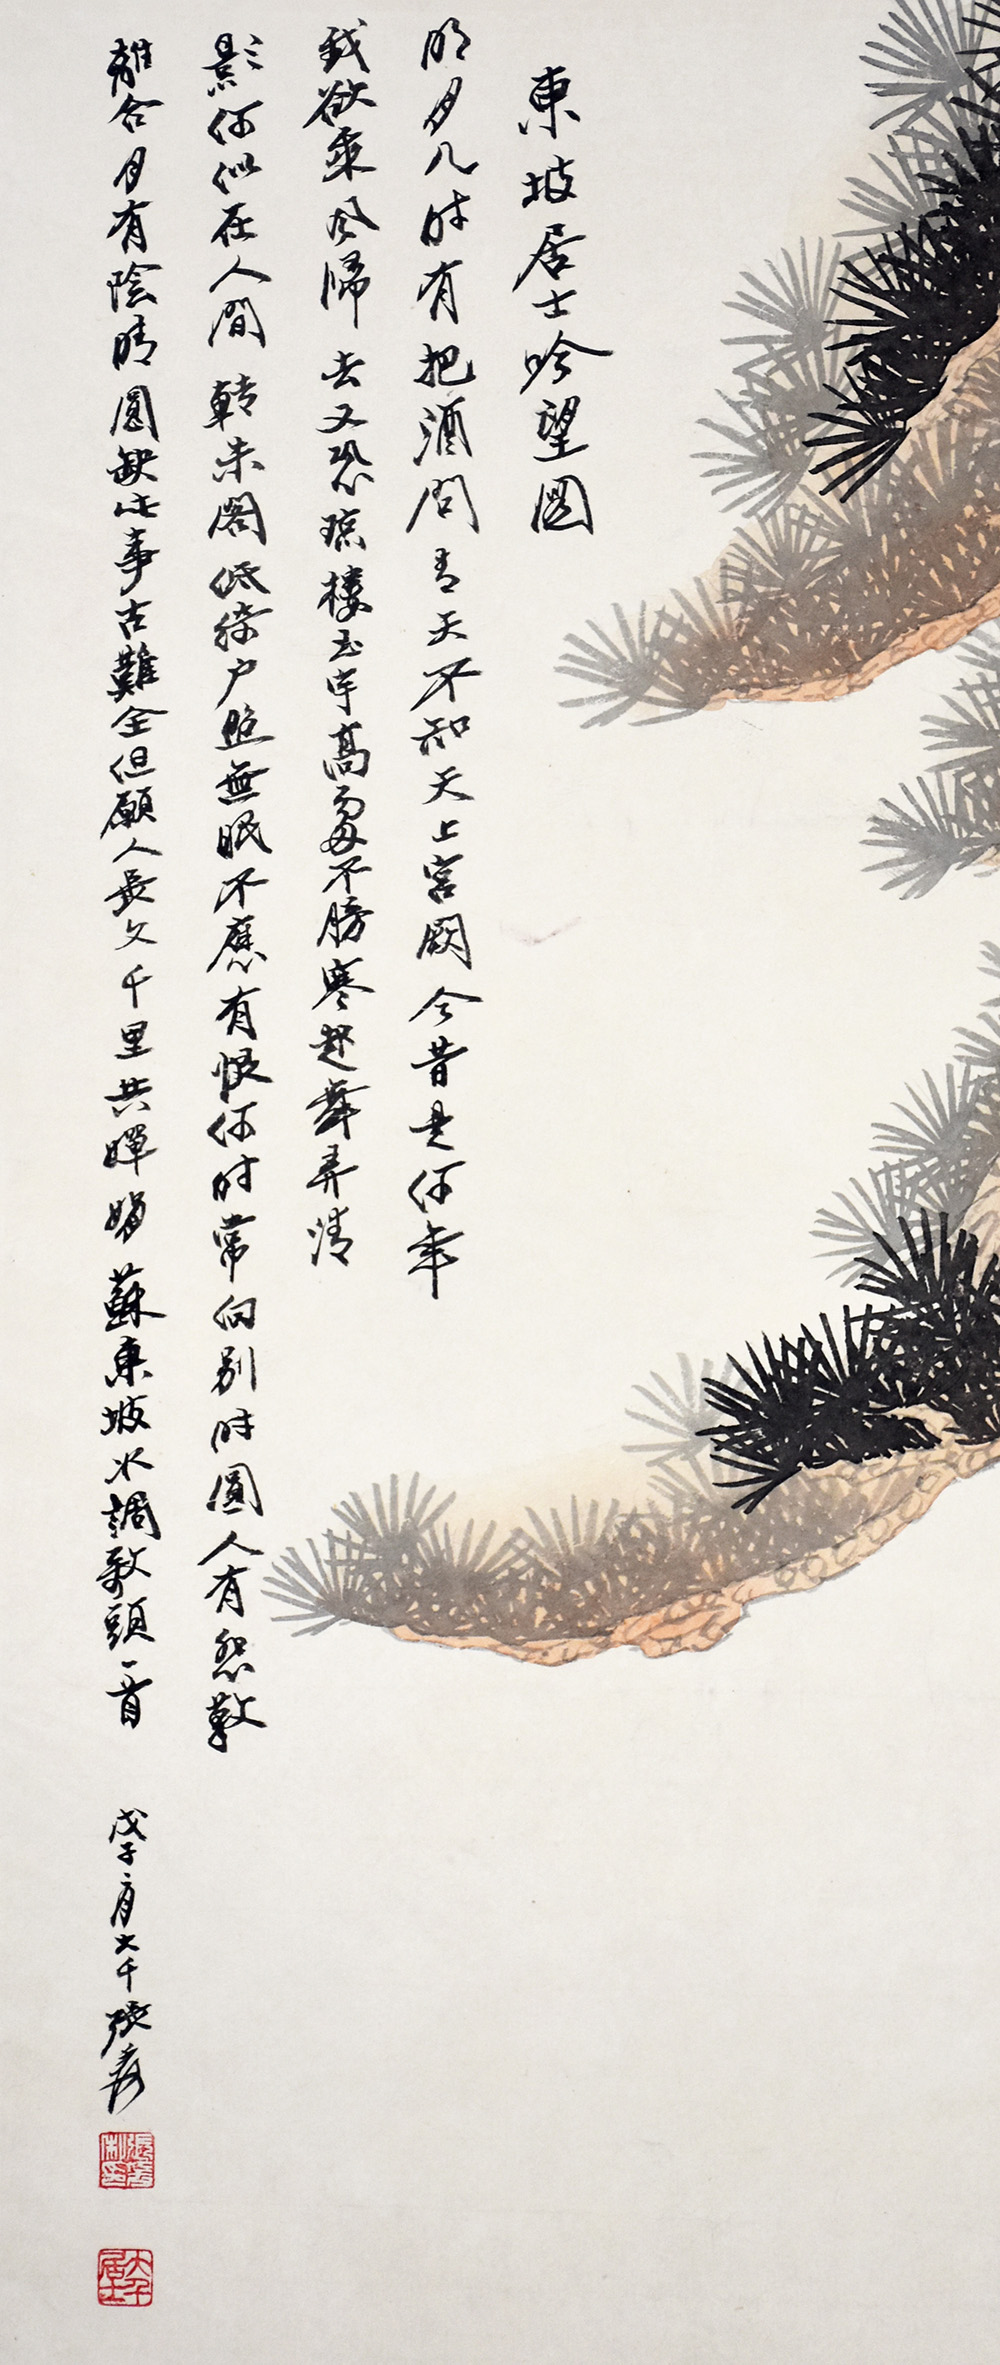 東坡居士吟望圖
明月几时有把酒問青天不知天上宮闕今昔是何年
我欲乘风歸去又恐瓊樓玉宇高處不勝寒起舞弄清
影何似在人間轉朱閣低綺户照無眠不應有恨何时常向别时圓人有悲歡
離合月有陰晴圓缺此事古難全但願人長久千里共嬋娟蘇東坡水調歌頭一首
戊子二月大千張爰
大千居士